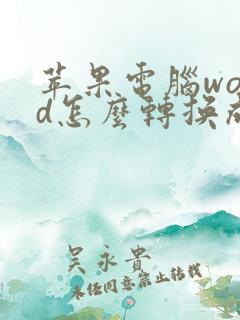 苹果電腦wo
d怎麼轉換成
吴永貴
未经同意禁止转载